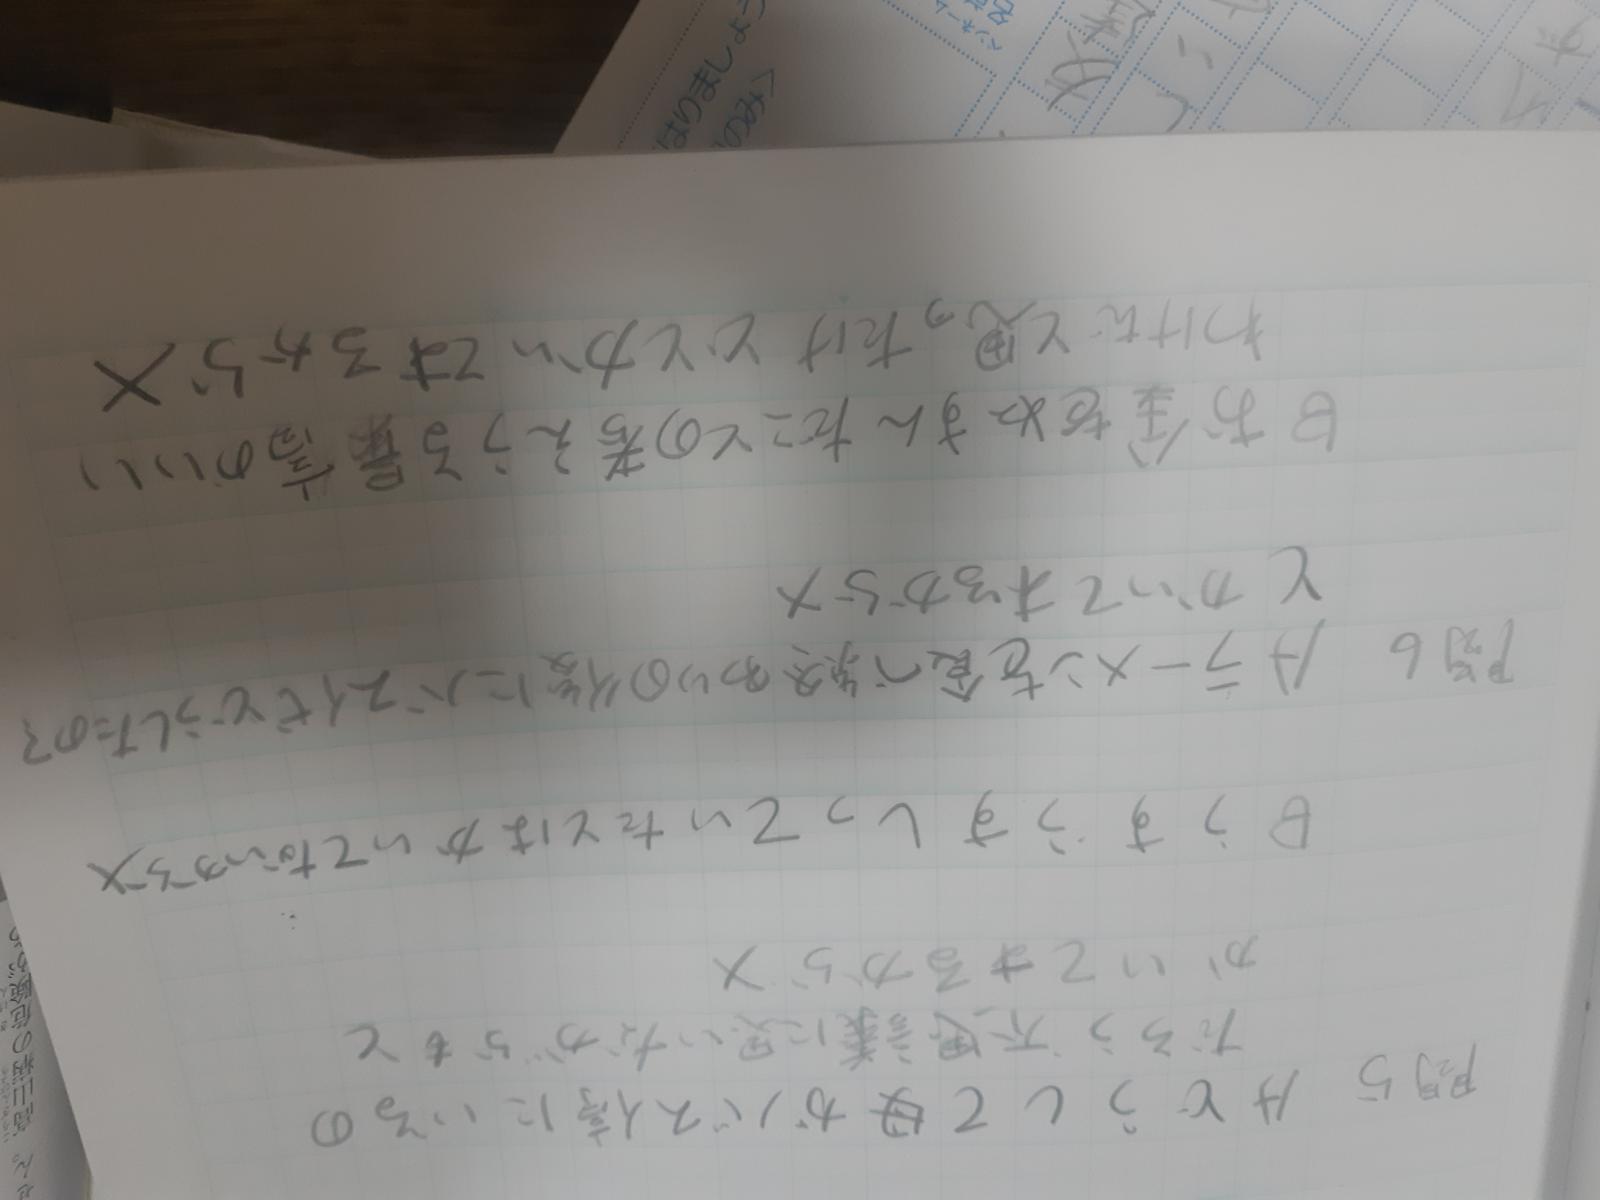 問5 A どうして母がバス停にいるの
だろう不思議に思いながらもと
かいてあるから×
B うすうすしっていたとはかいてないから×
問6 A ラーメンを食べ終わりの後にバス代どうしたの?
とかいてあるから×
B お金をぬすんだことの考えうる最高のいい
わけだと思ったけどとかいてあるから×
はりましょう
のみ〉